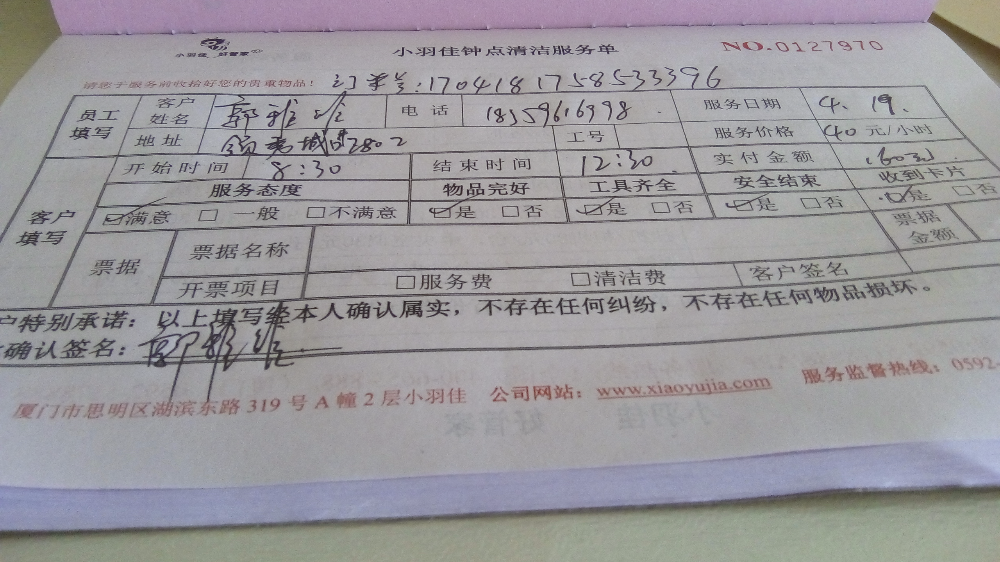 小羽佳 好管家
小羽佳钟点清洁服务单
NO.0127970
请您于服务前收拾好您的贵重物品！ 订单号:170418175853396
员工填写 客户姓名 郭雅 电话 18559616998 服务日期 4.19.
地址 城 2802 工号 服务价格 40元/小时
客户填写 开始时间 8:30 结束时间 12:30 实付金额 160元
服务态度 物品完好 工具齐全 安全结束 收到卡片
☑满意 □一般 □不满意 ☑是 □否 ☑是 □否 ☑是 □否 ☑是 □否
票据 票据名称 票据金额
开票项目 □服务费 □清洁费 客户签名
户特别承诺：以上填写经本人确认属实，不存在任何纠纷，不存在任何物品损坏。
确认签名：郭雅
厦门市思明区湖滨东路319号A幢2层小羽佳 公司网站：www.xiaoyujia.com 服务监督热线：0592-